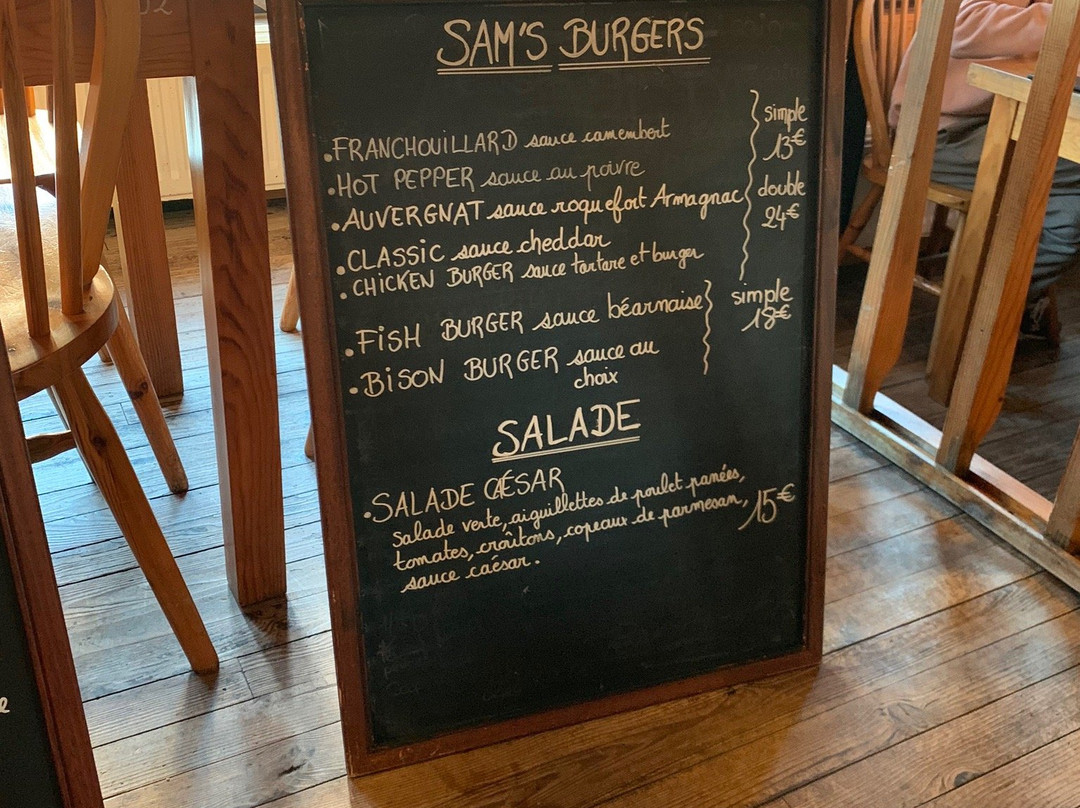 SAM'S BURGERS
. FRANCHOUILLARD sauce camembert
. HOT PEPPER sauce au poivre
. AUVERGNAT sauce roquefort Armagnac
. CLASSIC sauce cheddar
. CHICKEN BURGER sauce tartare et burger
simple
13€
double
24€
. FISH BURGER sauce béarnaise
. BISON BURGER sauce au
choix
simple
18€
SALADE
. SALADE CÉSAR
Salade verte, aiguillettes de poulet panées,
tomates, croûtons, copeaux de parmesan, 15€
sauce caésar.